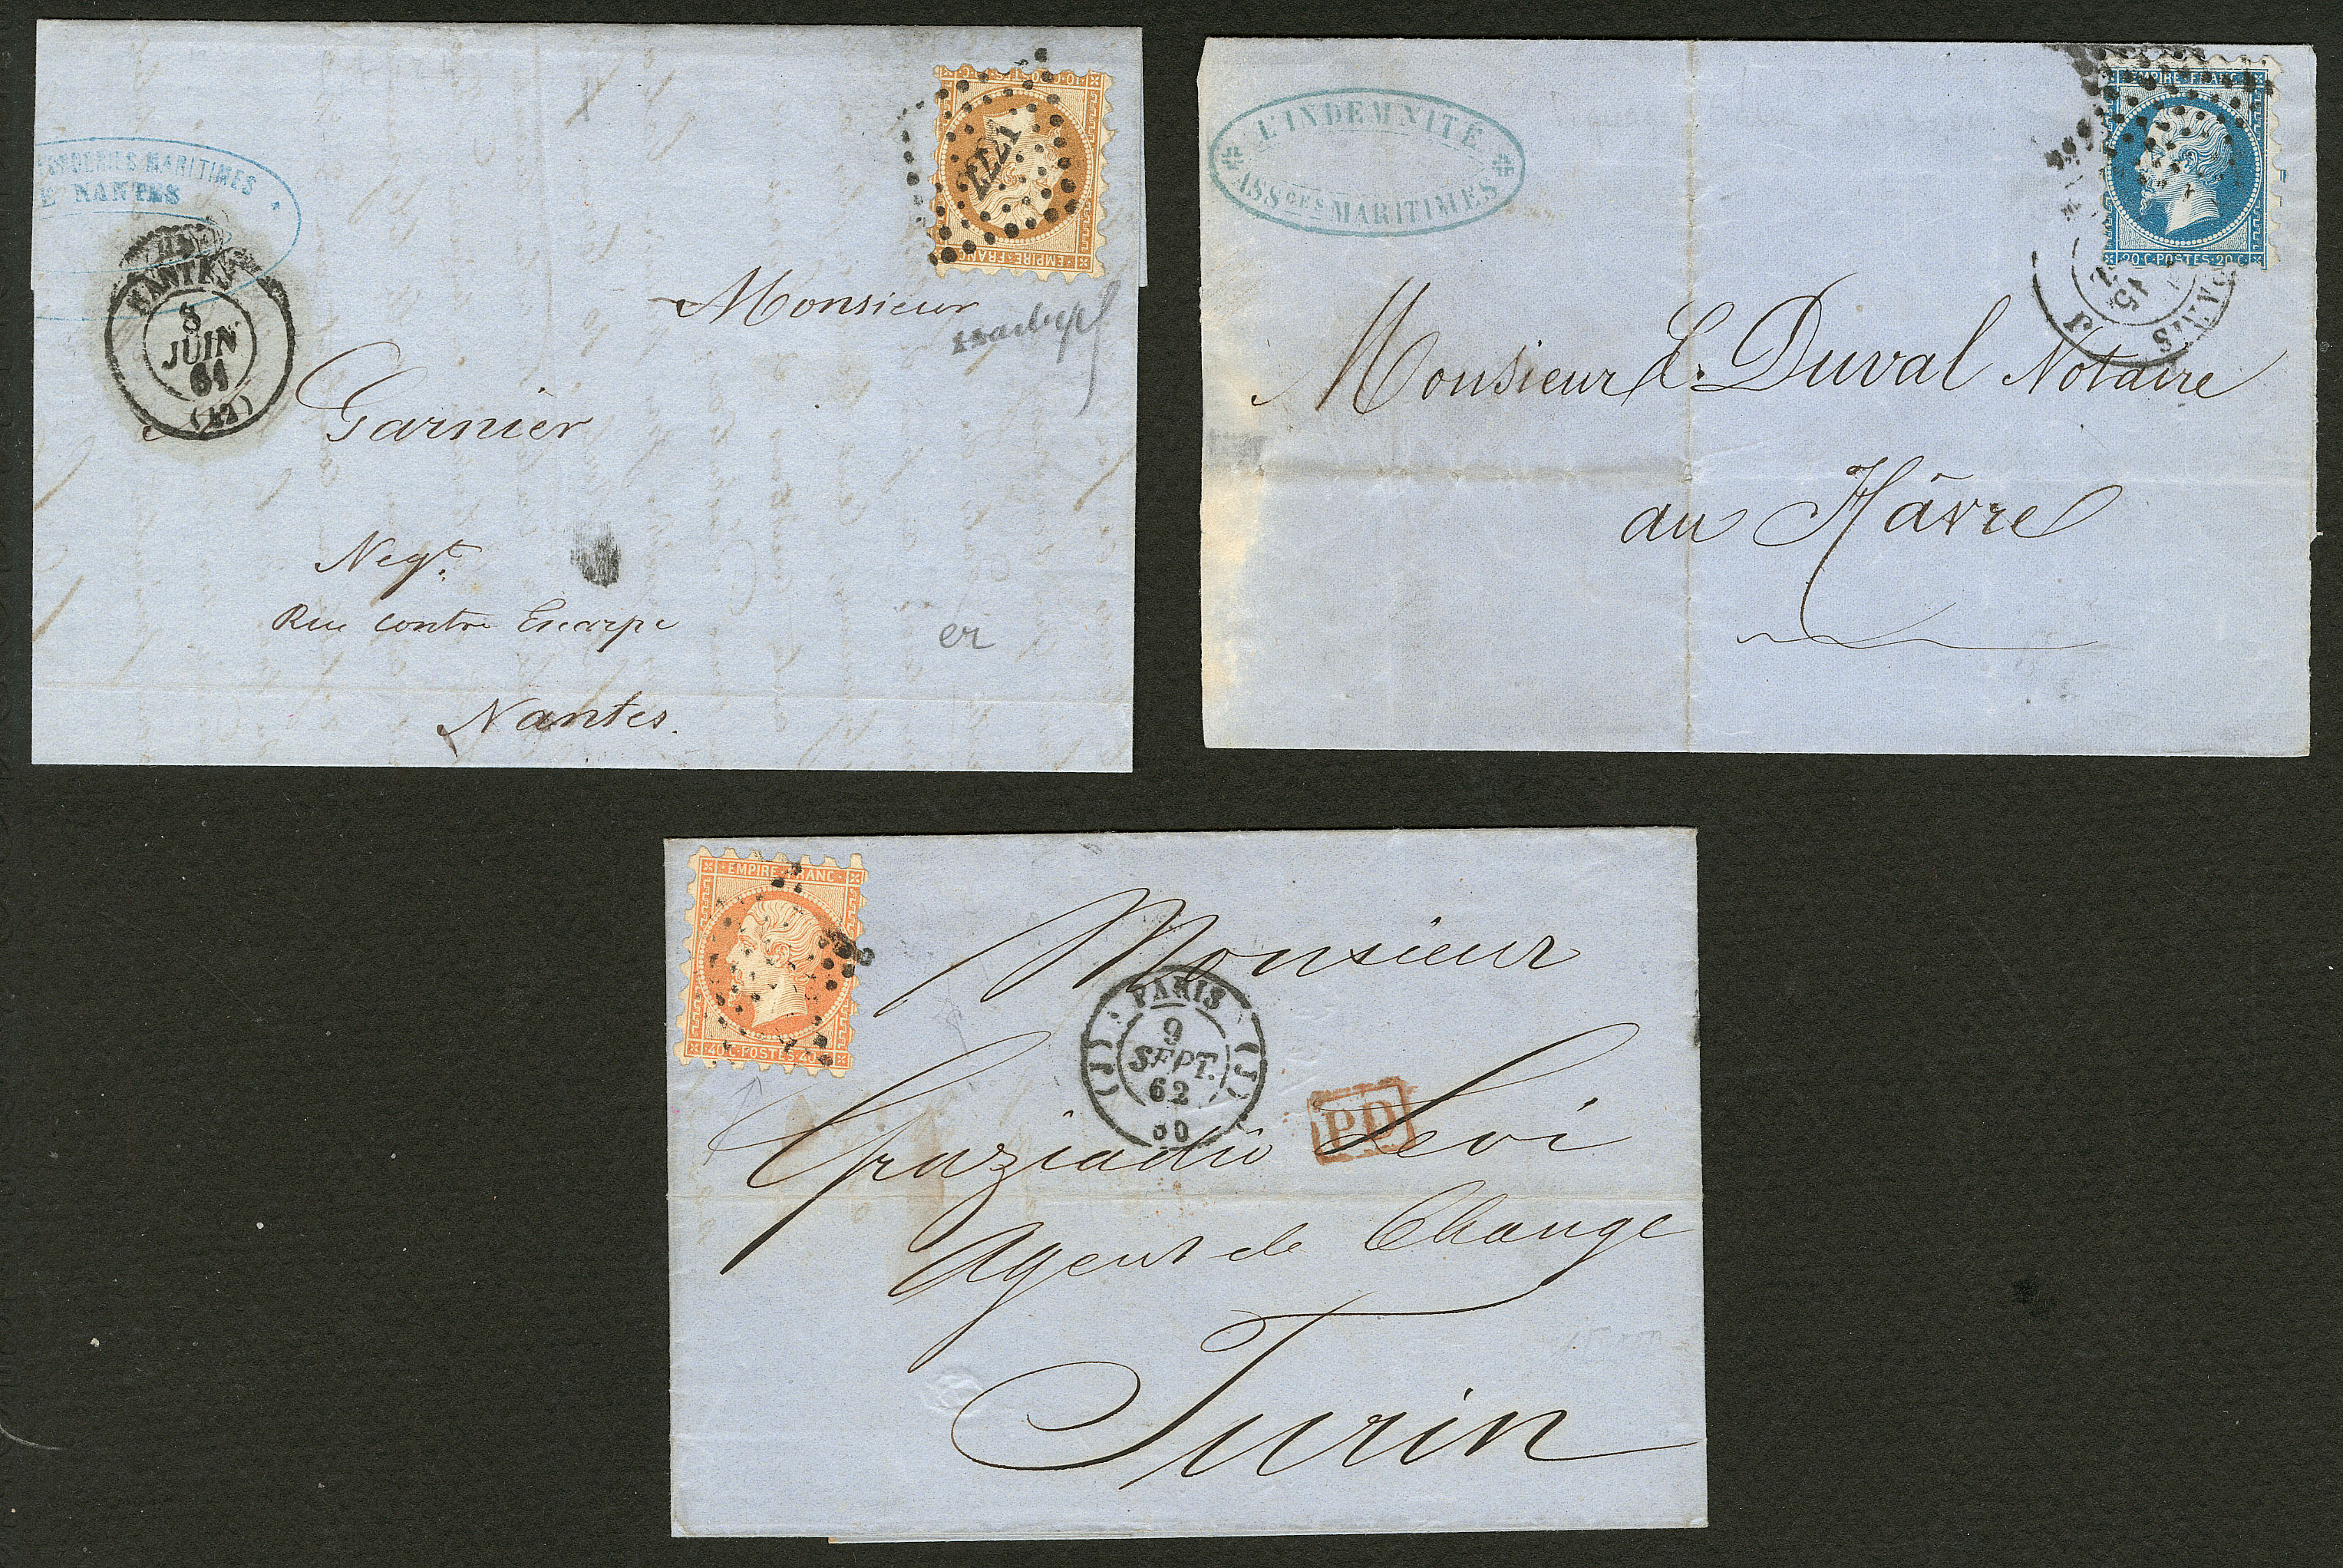 MARITIMES
NANTES
NANTES
8
JUIN
61
(12)
10·C·POSTES·10·C
EMPIRE·FRANC
Monsieur
Garnier
Negt.
Rue contre Escarpe
Nantes.
er
L'INDEMNITÉ
ASSCES MARITIMES
EMPIRE·FRANC·
20·C·POSTES·20·C·
PARIS
15
J
Monsieur L. Duval Notaire
au Hâvre
·EMPIRE·FRANC·
·40·C·POSTES·40·C
Monsieur
PARIS
(J) (J)
9
SEPT.
62
60
PD
Graziadio Levi
Agent de Change
Turin